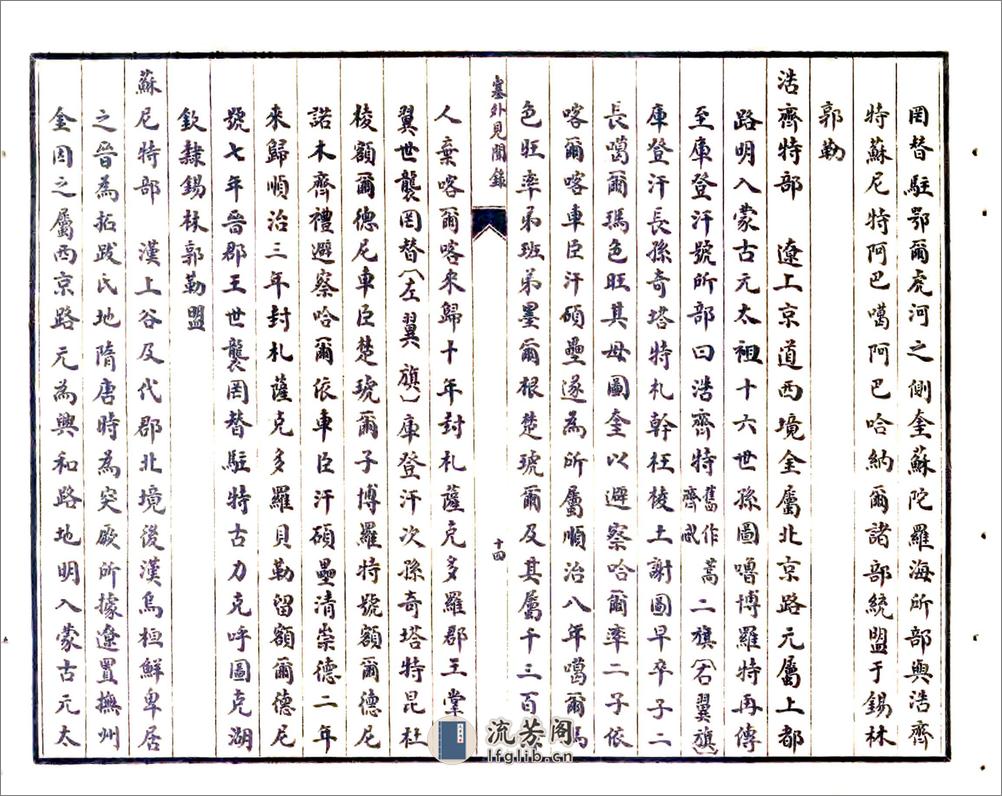 罔替駐鄂爾虎河之側奎蘇陀羅海所部與浩齊
特蘇尼特阿巴噶阿巴哈納爾諸部統盟于錫林
郭勒
浩齊特部　遼上京道西境金屬北京路元屬上都
路明入蒙古元太祖十六世孫圖嚕博羅特再傳
至庫登汗號所部曰浩齊特舊作蒿齊忒二旗（右翼旗）
庫登汗長孫奇塔特札幹杜棱土謝圖早卒子二
長噶爾瑪色旺其母圖奎以避察哈爾率二子依
喀爾喀車臣汗碩壘遂為所屬順治八年噶爾馬
色旺率弟班弟墨爾根楚琥爾及其屬千三百
塞外見聞錄
十四
人棄喀爾喀來歸十年封札薩克多羅郡王掌
翼世襲罔替（左翼旗）庫登汗次孫奇塔特昆杜
棱額爾德尼車臣楚琥爾子博羅特號額爾德尼
諾木齊禮避察哈爾依車臣汗碩壘清崇德二年
來歸順治三年封札薩克多羅貝勒留額爾德尼
號七年晉郡王世襲罔替駐特古力克呼圖克湖
欽隸錫林郭勒盟
蘇尼特部　漢上谷及代郡北境後漢烏桓鮮卑居
之晉為拓跋氏地隋唐時為突厥所據遼置撫州
金因之屬西京路元為興和路地明入蒙古元太
流芳阁
lfglib.cn